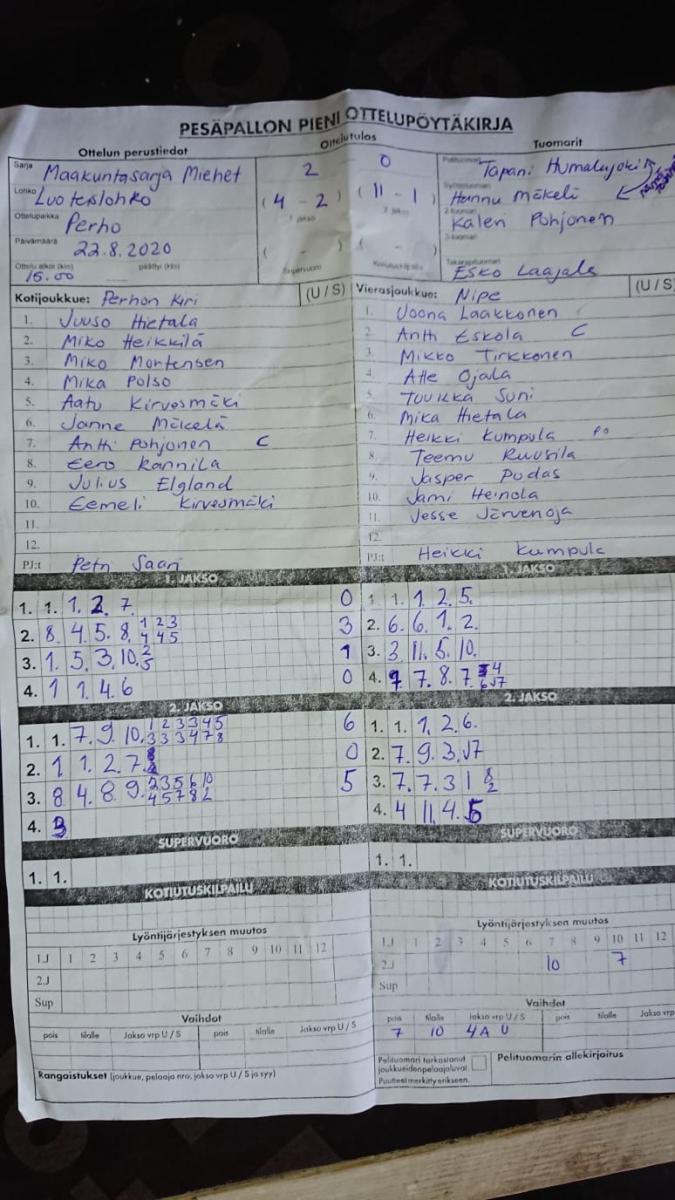 PESÄPALLON PIENI OTTELUPÖYTÄKIRJA
Ottelun perustiedot
Ottelutulos
Tuomarit
Sarja Maakuntasarja Miehet
Lohko Luoteislohko
Ottelupaikka Perho
Päivämäärä 22.8.2020
Ottelu alkoi (klo) 15.00 päättyi (klo)
2 0
(4 - 2) (11 - 1)
1. jakso 2. jakso
( - ) ( - )
Supervuoro Kotiutuskilpailu
Tapani Humalajoki
Hannu Mäkeli
Kaleri Pohjonen
Esko Laajala
Kotijoukkue: Perhon Kiri (U / S)
1. Juuso Hietala
2. Miko Heikkilä
3. Miko Mortensen
4. Mika Polso
5. Aatu Kirvesmäki
6. Janne Mäkelä
7. Antti Pohjonen C
8. Eero Kannila
9. Julius Elgland
10. Eemeli Kirvesmäki
11.
12.
PJ:t Petri Saari
Vierasjoukkue: Nipe (U / S)
1. Joona Laakkonen
2. Antti Eskola C
3. Mikko Tirkkonen
4. Atte Ojala
5. Tuukka Suni
6. Mika Hietala
7. Heikki Kumpula
8. Teemu Ruusila
9. Jasper Pudas
10. Jami Heinola
11. Jesse Järvenoja
12.
PJ:t Heikki Kumpula
1. JAKSO
1. 1. 1. 2. 7. 0
2. 8. 4. 5. 8. 1 2 3 3
4 4 5
3. 1. 5. 3. 10. 2 1
5
4. 1 1. 4. 6 0
2. JAKSO
1. 1. 7. 9. 10. 1 2 3 3 4 5 6
3 3 3 4 7 8
2. 1 1. 2. 7. 0
3. 8 4. 8. 9. 2 3 5 6 10 5
4 5 7 8 2
4. 3
SUPERVUORO
1. 1.
KOTIUTUSKILPAILU
1. JAKSO
1 1. 1. 2. 5.
2. 6. 6. 1. 2.
3. 3 11. 5. 10.
4. 7. 8. 7.
2. JAKSO
1. 1. 1. 2 6.
2. 7. 9. 3. 7
3. 7. 7. 3 1 8
2
4. 4 11. 4. 5
SUPERVUORO
1. 1.
KOTIUTUSKILPAILU
Lyöntijärjestyksen muutos
1.J 1 2 3 4 5 6 7 8 9 10 11 12
2.J
Sup
Vaihdot
pois tilalle Jakso vrp U / S pois tilalle Jakso vrp U / S
Rangaistukset (joukkue, pelaaja nro, jakso vrp U / S ja syy)
Lyöntijärjestyksen muutos
1.J 1 2 3 4 5 6 7 8 9 10 11 12
2.J 10 7
Sup
Vaihdot
pois tilalle Jakso vrp U / S pois tilalle Jakso vrp U / S
7 10 4A U
Pelituomari tarkastanut
joukkueiden pelaajaluvat
Puutteet merkitty erikseen.
Pelituomarin allekirjoitus